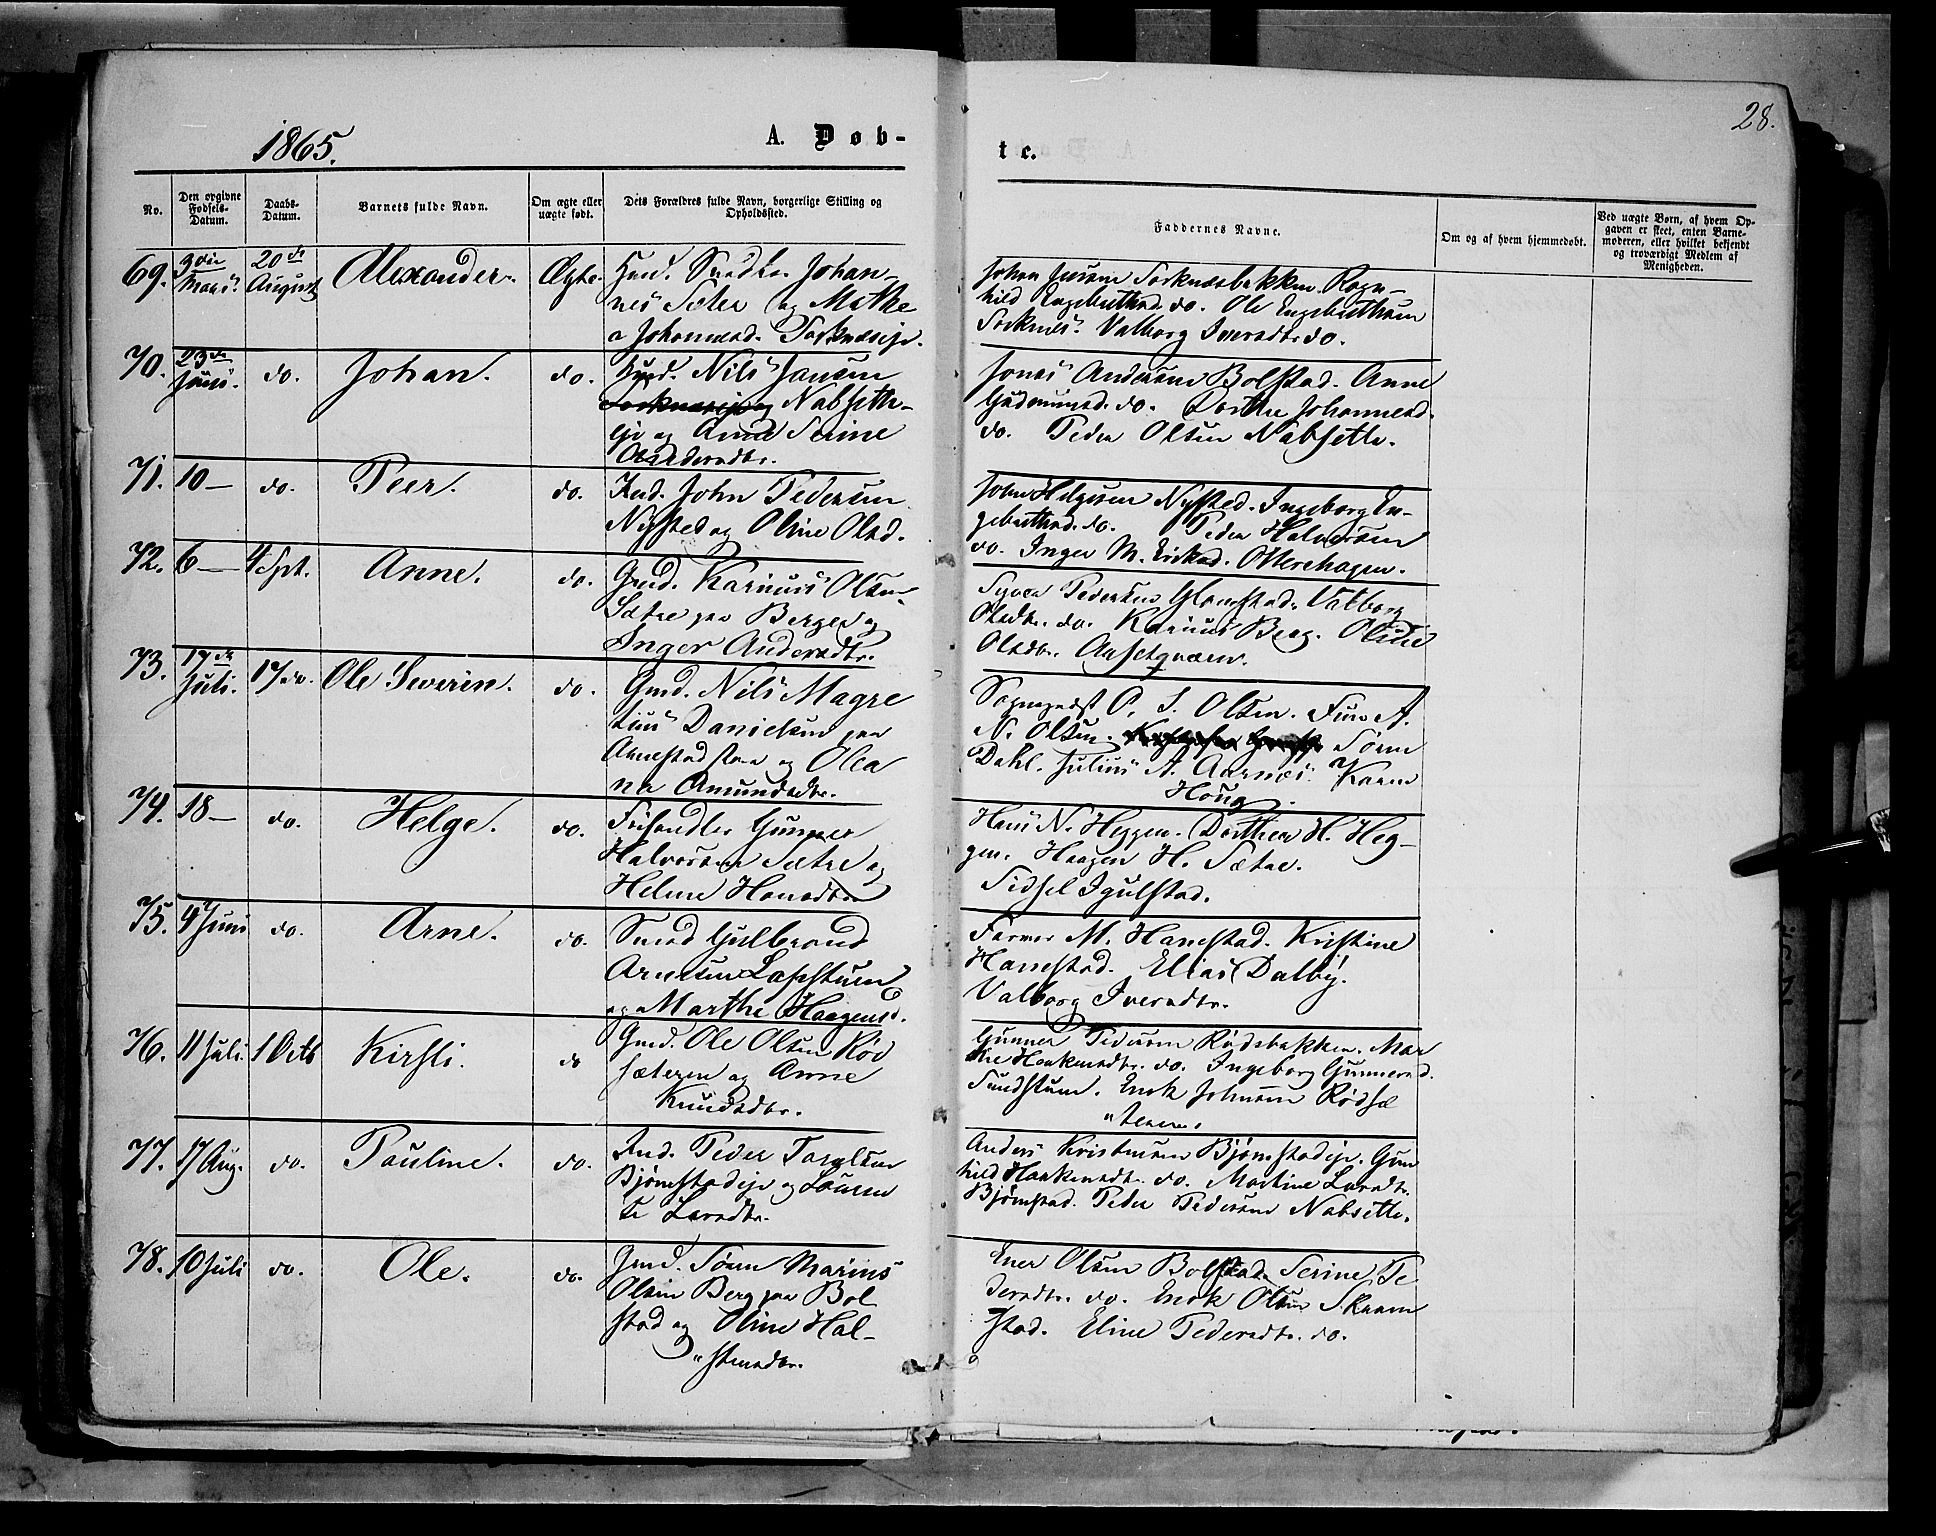 1865.
A. Døb-
te.
28.
No.
Den opgivne Fødsels-Datum.
Daabs-Datum.
Barnets fulde Navn.
Om ægte eller uægte født.
Dets Forældres fulde Navn, borgerlige Stilling og Opholdssted.
Faddernes Navne.
Om og af hvem hjemmedøbt.
Ved uægte Børn, af hvem Op-
gaven er skeet, enten Barne-
moderen, eller hvilket bekjendt
og troværdigt Medlem af
Menigheden.
69. 3die Marts. 20de August Alexander. Ægte. Johan-
nes og Mathe
Johannesd.
Ole Engebrethsen
Valborg Iversdtr. do.
70. 23de Juni. do. Johan. do. Nils Jansen
Nabsette-
eje og Anne Serine
Jonas Andersen Bolstad. Anne
Gudmunsd. do. Dorthe Johannesd.
do. Peder Olsen Nabsette.
71. 10 — do. Peer. do. Ind. John Pedersen
Nysted og Oline Olsd.
John Helgesen Nysted. Ingeborg En-
gebrethsd. do. Peder Halvorsen
do. Inger M. Eriksd. Ottershagen.
72. 6 — 4 Spt. Anne. do. Gmd. Karinus Olsen
Sætre paa Berger og
Inger Andersdtr.
Syver Pedersen Valborg
Olsdtr. do. Karinus Berg. Oline
Olsdtr.
73. 17de Juli. 17 do. Ole Severin. do. Gmd. Nils Magre
tius Danielsen paa
og Olea
na Amundsdtr.
Sogneprest P. S. Olsen. Frue A.
N. Olsen. Søren
Dahl. Julius A. Aarnæs. Karen
Houg.
74. 18 — do. Helge. do. Gunner
Halvorsen Sætre og
Helene Hansdtr
Hans N. Heggen. Dorthea H. Heg-
gen. Haagen H. Sætre.
Sidsel Igulstad.
75. 4 Juni do. Arne. do. Smed Gulbrand
Arnesen
og Marthe Haagensd.
Farver M. Hanestad. Kristine
Hanestad. Elias Dalby.
Valborg Iversdtr.
76. 11 Juli. 1 Octb Kirsti. do Gmd. Ole Olsen Rød
sæteren og Anne
Knudsdtr.
Gunner Pedersen Rødsbakken. Mar
the Haakensdtr. do. Ingeborg Gunnersd.
Sundstuen. Enok Johnsen Rødsæ
"teren.
77. 17 Aug. do. Pauline. do. Ind. Peder
Bjørnstadeje og Lauren
tse Larsdtr.
Anders Kristensen Bjørnstadeje. Gun
hild Haakensdtr. do. Martine Larsdtr.
Bjørnstad. Peder Pedersen Nabsette.
78. 10 Juli do. Ole. do. Gmd. Søren Marius
Olsen Berg paa Bol
stad og Oline Hal-
"stensdtr.
Ener Olsen Bolstad. Serine Pe
dersdtr. do. Enok Olsen Skram
stad. Eline Pedersdtr. do.